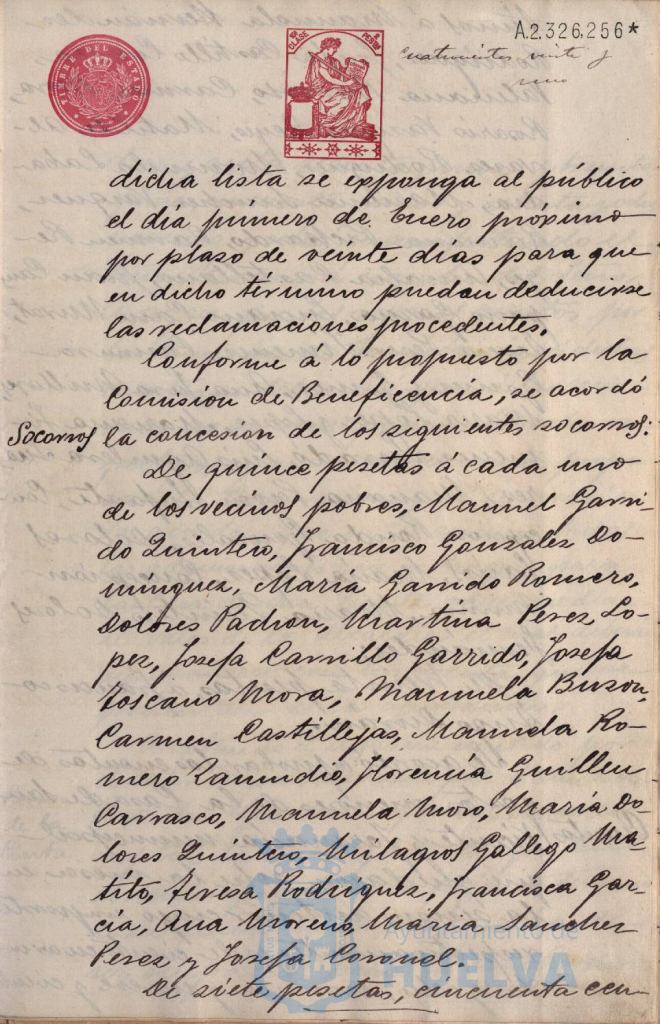 A.2.326,256*
Cuatrocientos veinte y
uno
TIMBRE DEL ESTADO
CLASE
PESETAS
dicha lista se exponga al público
el día primero de Enero próximo
por plazo de veinte días para que
en dicho término puedan deducirse
las reclamaciones procedentes.
Conforme á lo propuesto por la
Comisión de Beneficencia, se acordó
Socorros la concesion de los siguientes socorros:
De quince pesetas á cada uno
de los vecinos pobres, Manuel Garri-
do Quintero, Francisco Gonzalez Do-
minguez, María Garrido Romero,
Dolores Padron, Martina Perez Lo-
pez, Josefa Carrillo Garrido, Josefa
Toscano Mora, Manuela Buzon,
Carmen Castillejas, Manuela Ro-
mero Zamudio, Florencia Guillen
Carrasco, Manuela Moro, María Do-
lores Quintero, Milagros Gallego Ma-
tito, Teresa Rodriguez, Francisca Gar-
cía, Ana Moreno, Maria Sanchez
Perez y Josefa Coronel.
De siete pesetas, cincuenta cen-
Ayuntamiento de
HUELVA